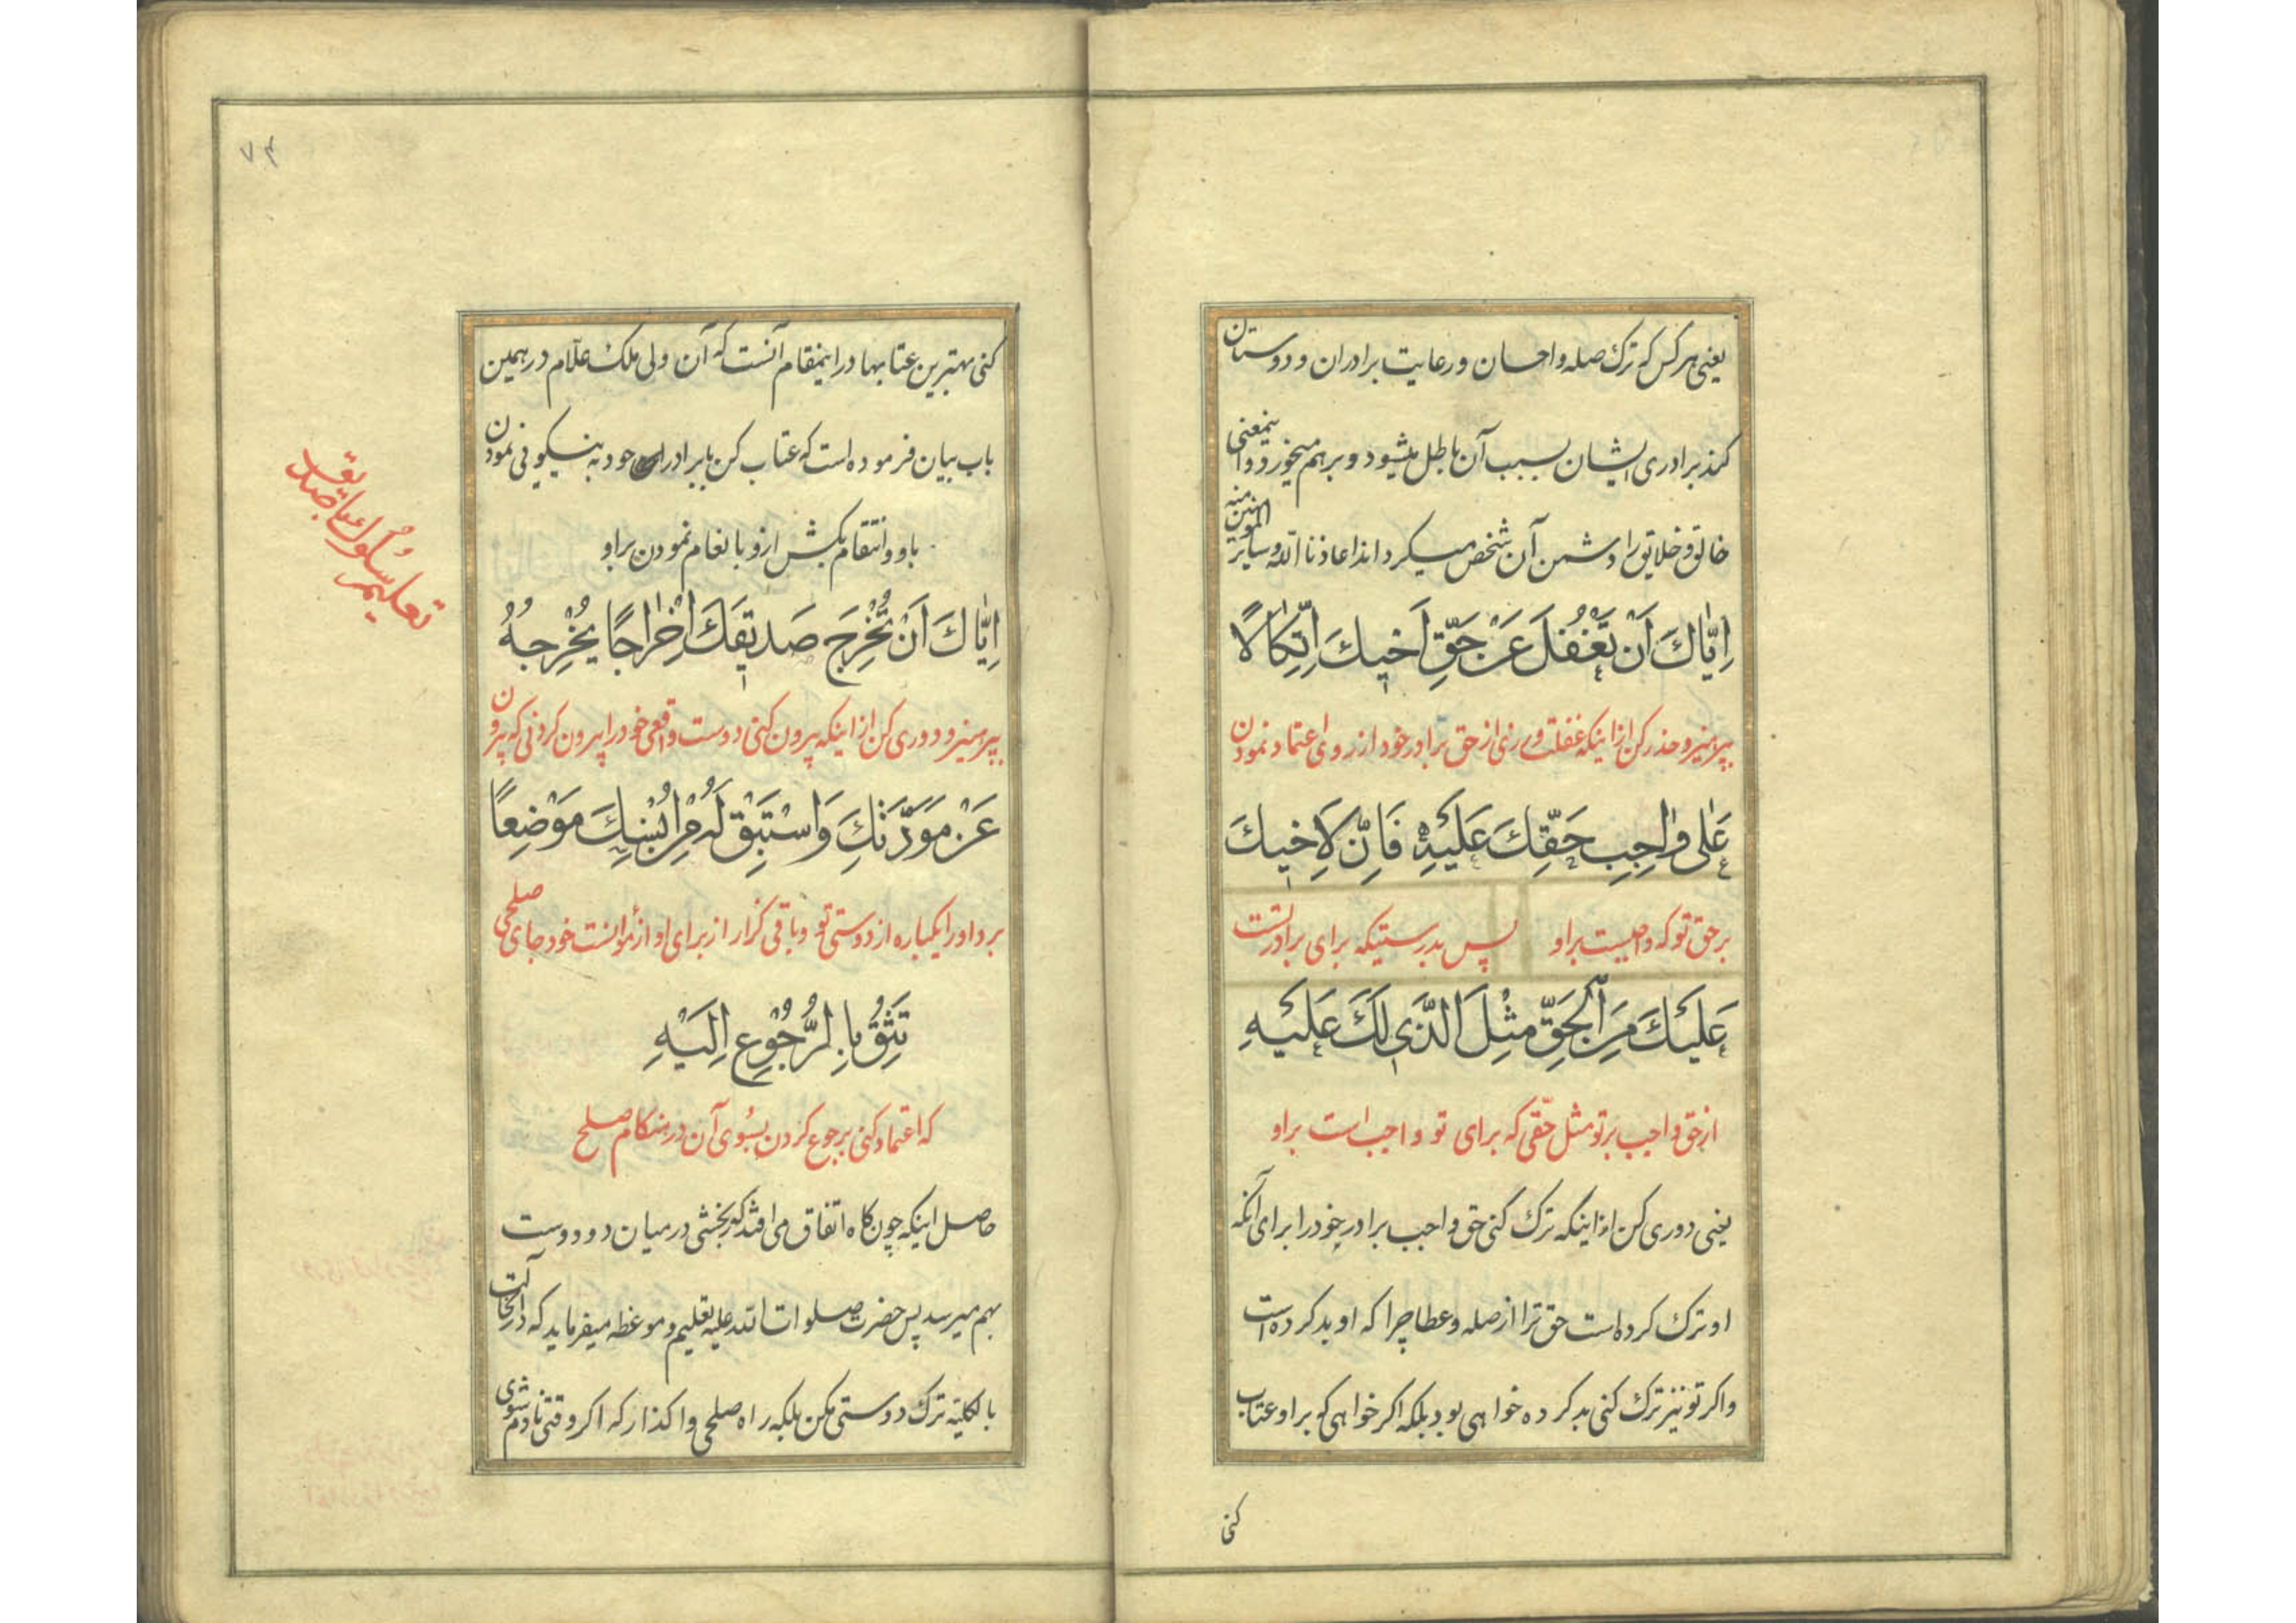 یعنی هرکس که ترک صله و احسان و رعایت برادران و دوستان
کند برادری ایشان بسبب آن باطل میشود و برهم میخورد و اینمعنی
خالق و خلایق را دشمن آن شخص میکرداند اعاذنا الله و سایر المؤمنین منه
اِیّاكَ اَنْ تَغْفُلَ عَنْ حَقِّ اَخیكَ اِتِّكالًا
بپرهیز و حذر کن از اینکه غفلت ورزی از حق برادر خود از روی اعتماد نمودن
عَلی واجِبِ حَقِّكَ عَلَیْهِ فَاِنَّ لِاَخیكَ
بر حق تو که واجبست بر او پس بدرستیکه برای برادرتست
عَلَیْكَ مِنَ الْحَقِّ مِثْلَ الَّذی لَكَ عَلَیْهِ
از حق واجب بر تو مثل حقّی که برای تو واجب است بر او
یعنی دوری کن از اینکه ترک کنی حق واجب برادر خود را برای آنکه
او ترک کرده است حق ترا از صله و عطا چرا که او بد کرده است
و اکر تو نیز ترک کنی بد کرده خواهی بود بلکه اکر خواهی که بر او عتاب
کنی
۷۴
کنی بهترین عتابها در اینمقام آنست که آن ولی ملک علّام در همین
باب بیان فرموده است که عتاب کن با برادران خود به نیکویی نمودن
باو و انتقام بکش ازو بانعام نمودن بر او
اِیّاكَ اَنْ تُخْرِجَ صَدیقَكَ اِخْراجًا یُخْرِجُهُ
بپرهیز و دوری کن از اینکه بیرون کنی دوست واقعی خود را بیرون کردنی که بیرون
عَنْ مَوَدَّتِكَ وَاسْتَبِقْ لَهُ مِنْ اُنْسِكَ مَوْضِعًا
برد او را یکباره از دوستی تو و باقی گزار از برای او از مؤانست خود جای صلحی
تَثِقُ بِالرُّجُوعِ اِلَیْهِ
که اعتماد کنی برجوع کردن بسوی آن در هنکام صلح
حاصل اینکه چون کاه اتفاق می افتد که رنجشی در میان دو دوست
بهم میرسد پس حضرت صلوات الله علیه تعلیم و موعظه میفرماید که در آنحالت
بالکلیّه ترک دوستی مکن بلکه راه صلحی واکذار که اکر وقتی نادم شوی
تعلیم سلوک با صدیق